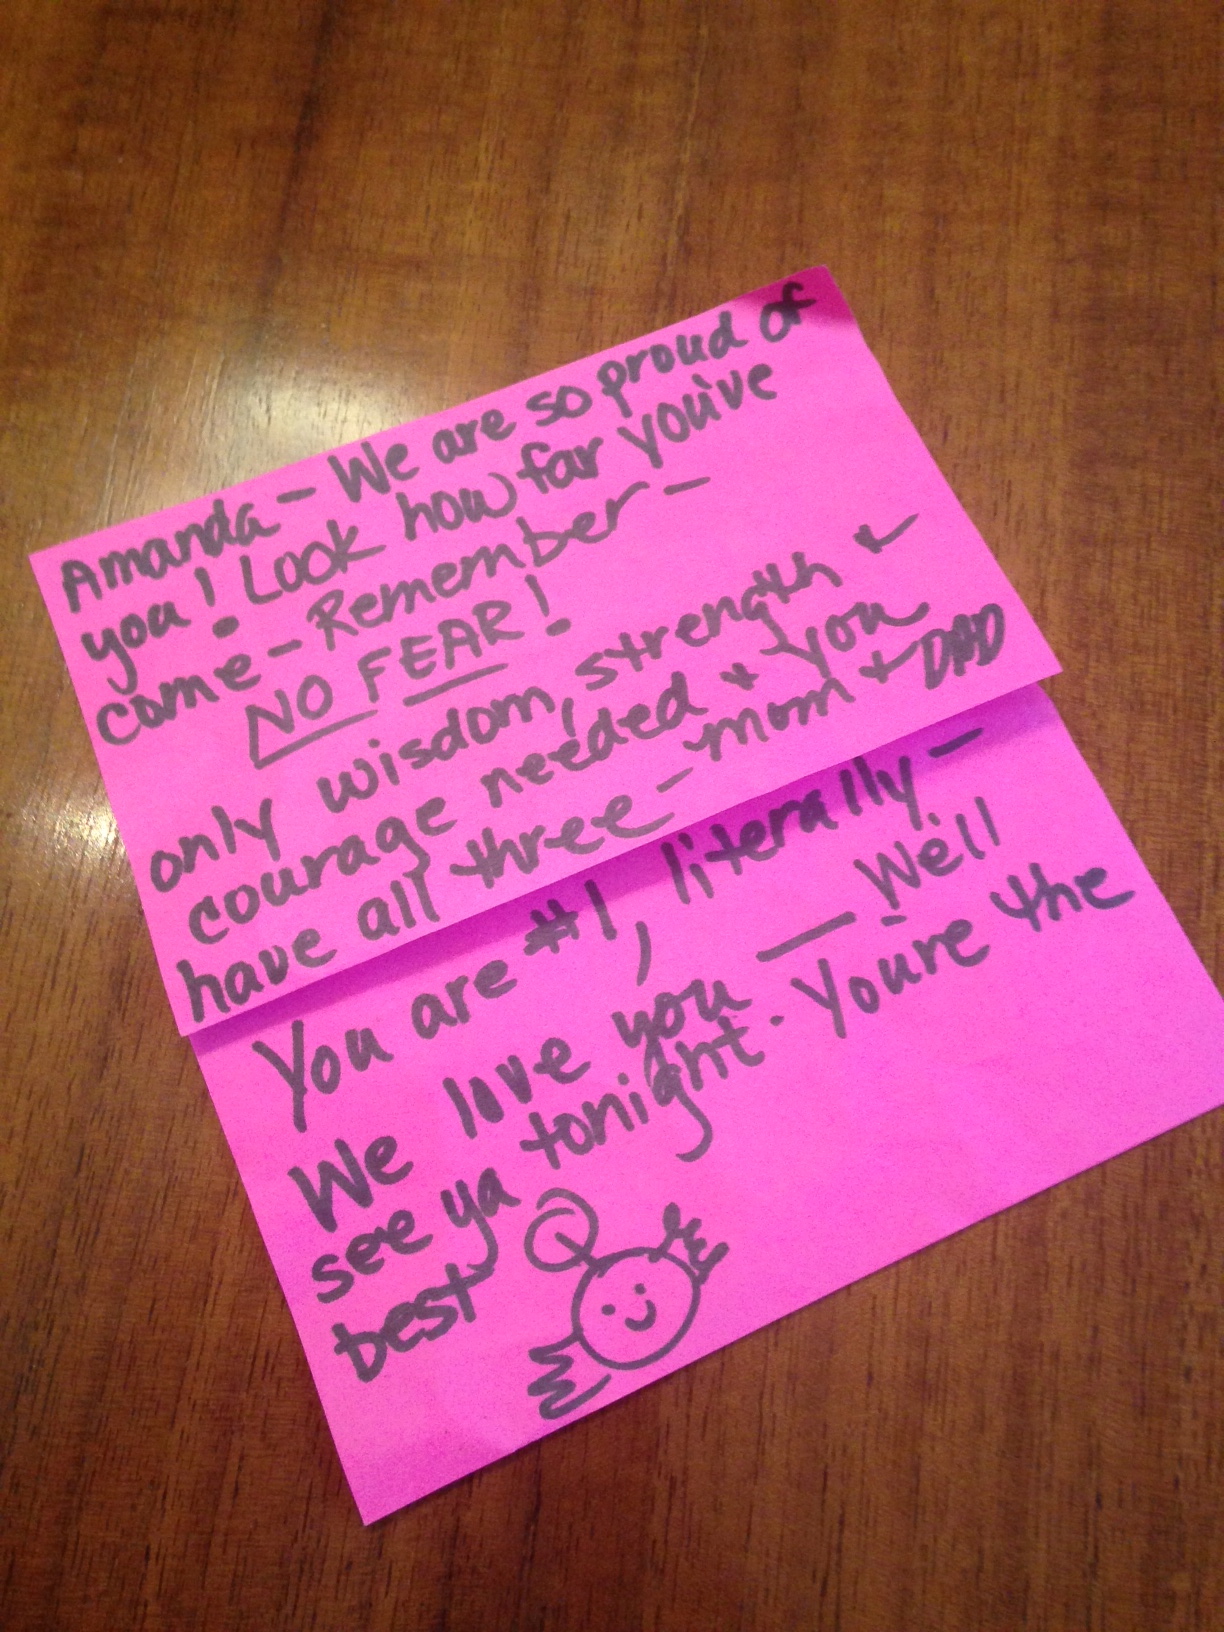 Amanda - We are so proud of
you! Look how far you've
come - Remember -
NO FEAR!
only wisdom, strength +
courage needed + you
have all three - mom + DAD
You are #1, literally -
We love you - We'll
see ya tonight. Youre the
best